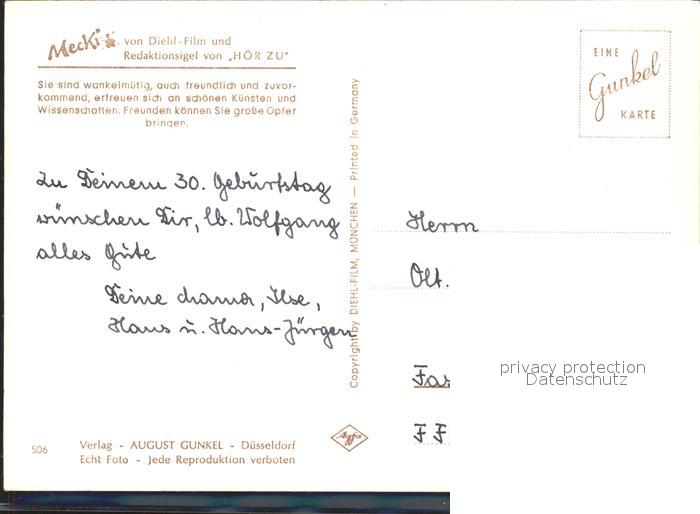 Mecki von Diehl-Film und
Redaktionsigel von „HÖR ZU"
Sie sind wankelmütig, auch freundlich und zuvor-
kommend, erfreuen sich an schönen Künsten und
Wissenschaften. Freunden können Sie große Opfer
bringen.
Zu Deinem 30. Geburtstag
wünschen Dir, lb. Wolfgang
alles Gute
Deine Mama, Ilse,
Hans u. Hans-Jürgen
506
Verlag - AUGUST GUNKEL - Düsseldorf
Echt Foto - Jede Reproduktion verboten
Copyright by DIEHL-FILM, MÜNCHEN — Printed in Germany
Agfa
EINE
Gunkel
KARTE
Herrn
Olt.
privacy protection
Datenschutz